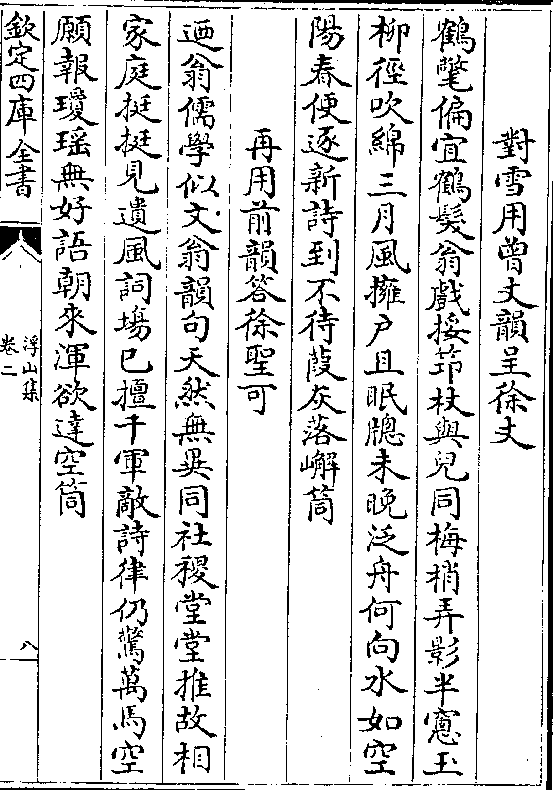 對雪用曾丈韻呈徐丈
鶴氅偏宜鶴髮翁戲挼笻杖與兒同梅梢弄影半窻玉
柳徑吹綿三月風擁户且眠牕未晚泛舟何向水如空
陽春便逐新詩到不待葭灰落嶰筒
再用前韻答徐聖可
迺翁儒學似文翁韻句天然無異同社稷堂堂推故相
家庭挺挺見遺風詞塲已擅千軍敵詩律仍驚萬馬空
願報瓊瑶無好語朝來渾欲達空筒
欽定四庫全書
浮山集
卷二
八